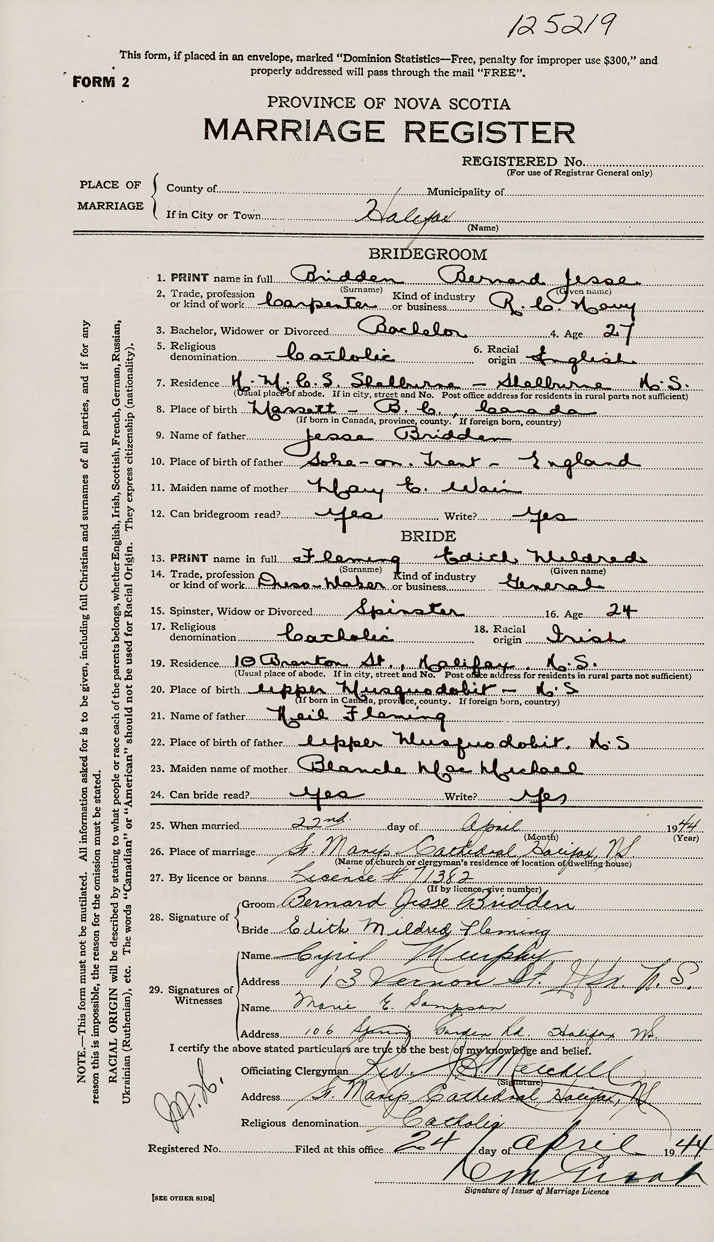 125219
This form, if placed in an envelope, marked "Dominion Statistics—Free, penalty for improper use $300," and
properly addressed will pass through the mail "FREE".
FORM 2
PROVINCE OF NOVA SCOTIA
MARRIAGE REGISTER
REGISTERED No.
(For use of Registrar General only)
PLACE OF MARRIAGE
County of Municipality of
If in City or Town Halifax
(Name)
NOTE.—This form must not be mutilated. All information asked for is to be given, including full Christian and surnames of all parties, and if for any
reason this is impossible, the reason for the omission must be stated.
RACIAL ORIGIN will be described by stating to what people or race each of the parents belongs, whether English, Irish, Scottish, French, German, Russian,
Ukrainian (Ruthenian), etc. The words "Canadian" or "American" should not be used for Racial Origin. They express citizenship (nationality).
BRIDEGROOM
1. PRINT name in full Bridden Bernard Jesse
(Surname) (Given name)
2. Trade, profession or kind of work Carpenter Kind of industry or business R.C. Navy
3. Bachelor, Widower or Divorced Bachelor 4. Age 27
5. Religious denomination Catholic 6. Racial origin English
7. Residence H.M.C.S. Shelburne - Shelburne N.S.
(Usual place of abode. If in city, street and No. Post office address for residents in rural parts not sufficient)
8. Place of birth Massett - B.C., Canada
(If born in Canada, province, county. If foreign born, country)
9. Name of father Jesse Bridden
10. Place of birth of father Stoke-on-Trent - England
11. Maiden name of mother Mary E.
12. Can bridegroom read? Yes Write? Yes
BRIDE
13. PRINT name in full Fleming Edith Mildred
(Surname) (Given name)
14. Trade, profession or kind of work Dress-Maker Kind of industry or business General
15. Spinster, Widow or Divorced Spinster 16. Age 24
17. Religious denomination Catholic 18. Racial origin Irish
19. Residence 10 St., Halifax, N.S.
(Usual place of abode. If in city, street and No. Post office address for residents in rural parts not sufficient)
20. Place of birth Upper Musquodobit - N.S
(If born in Canada, province, county. If foreign born, country)
21. Name of father Neil Fleming
22. Place of birth of father Upper Musquodobit, N.S
23. Maiden name of mother Blanche MacMichael
24. Can bride read? Yes Write? Yes
25. When married 22nd day of April 1944
(Month) (Year)
26. Place of marriage St. Mary's Cathedral, Halifax, NS
(Name of church or clergyman's residence or location of dwelling house)
27. By licence or banns License # 71382
(If by licence, give number)
28. Signature of
Groom Bernard Jesse Bridden
Bride Edith Mildred Fleming
29. Signatures of Witnesses
Name Cyril Murphy
Address 13 Vernon St. Hfx. N.S.
Name Marie E. Sampson
Address 106 Spring Garden Rd. Halifax NS.
I certify the above stated particulars are true to the best of my knowledge and belief.
Officiating Clergyman
(Signature)
Address St. Mary's Cathedral Halifax, NS
Religious denomination Catholic
Registered No. Filed at this office 24 day of April 1944
Signature of Issuer of Marriage Licence
[SEE OTHER SIDE]